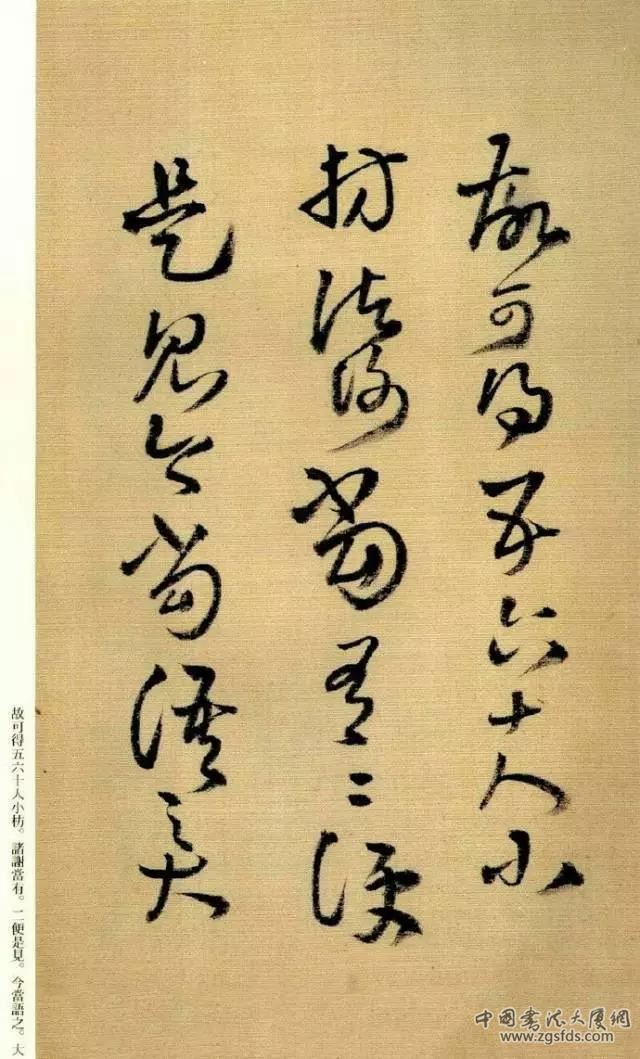 故可得五六十人小
枋諸謝當有二便
是見今當語之大
故可得五六十人小枋。諸謝當有。二便是見。今當語之。大
中国书法大厦網
www.zgsfds.com